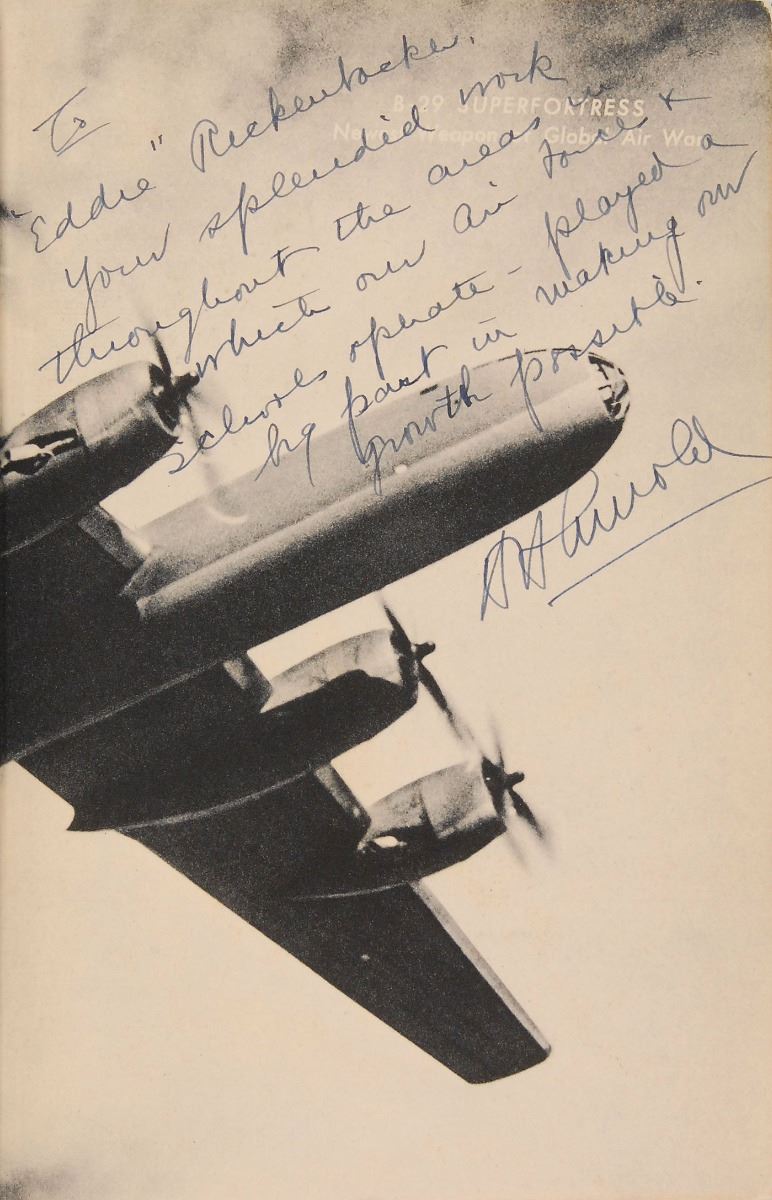 To
"Eddie" Rickenbacker.
Your splendid work
throughout the areas in
which our Air Force &
schools operate - played a
big part in making our
growth possible.
HH Arnold
B-29 SUPERFORTRESS
Newest Weapon of Global Air War